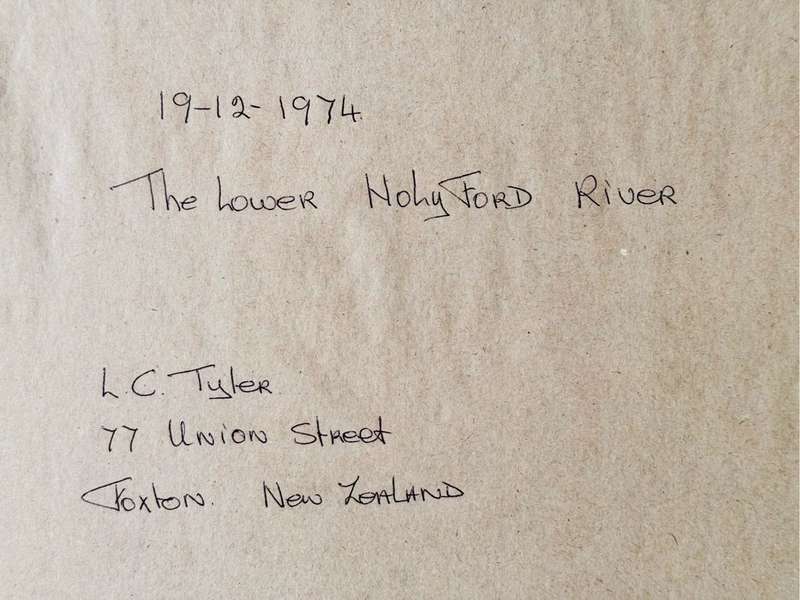 19-12-1974.
The Lower Hollyford River
L.C. Tyler
77 Union Street
Foxton. New Zealand